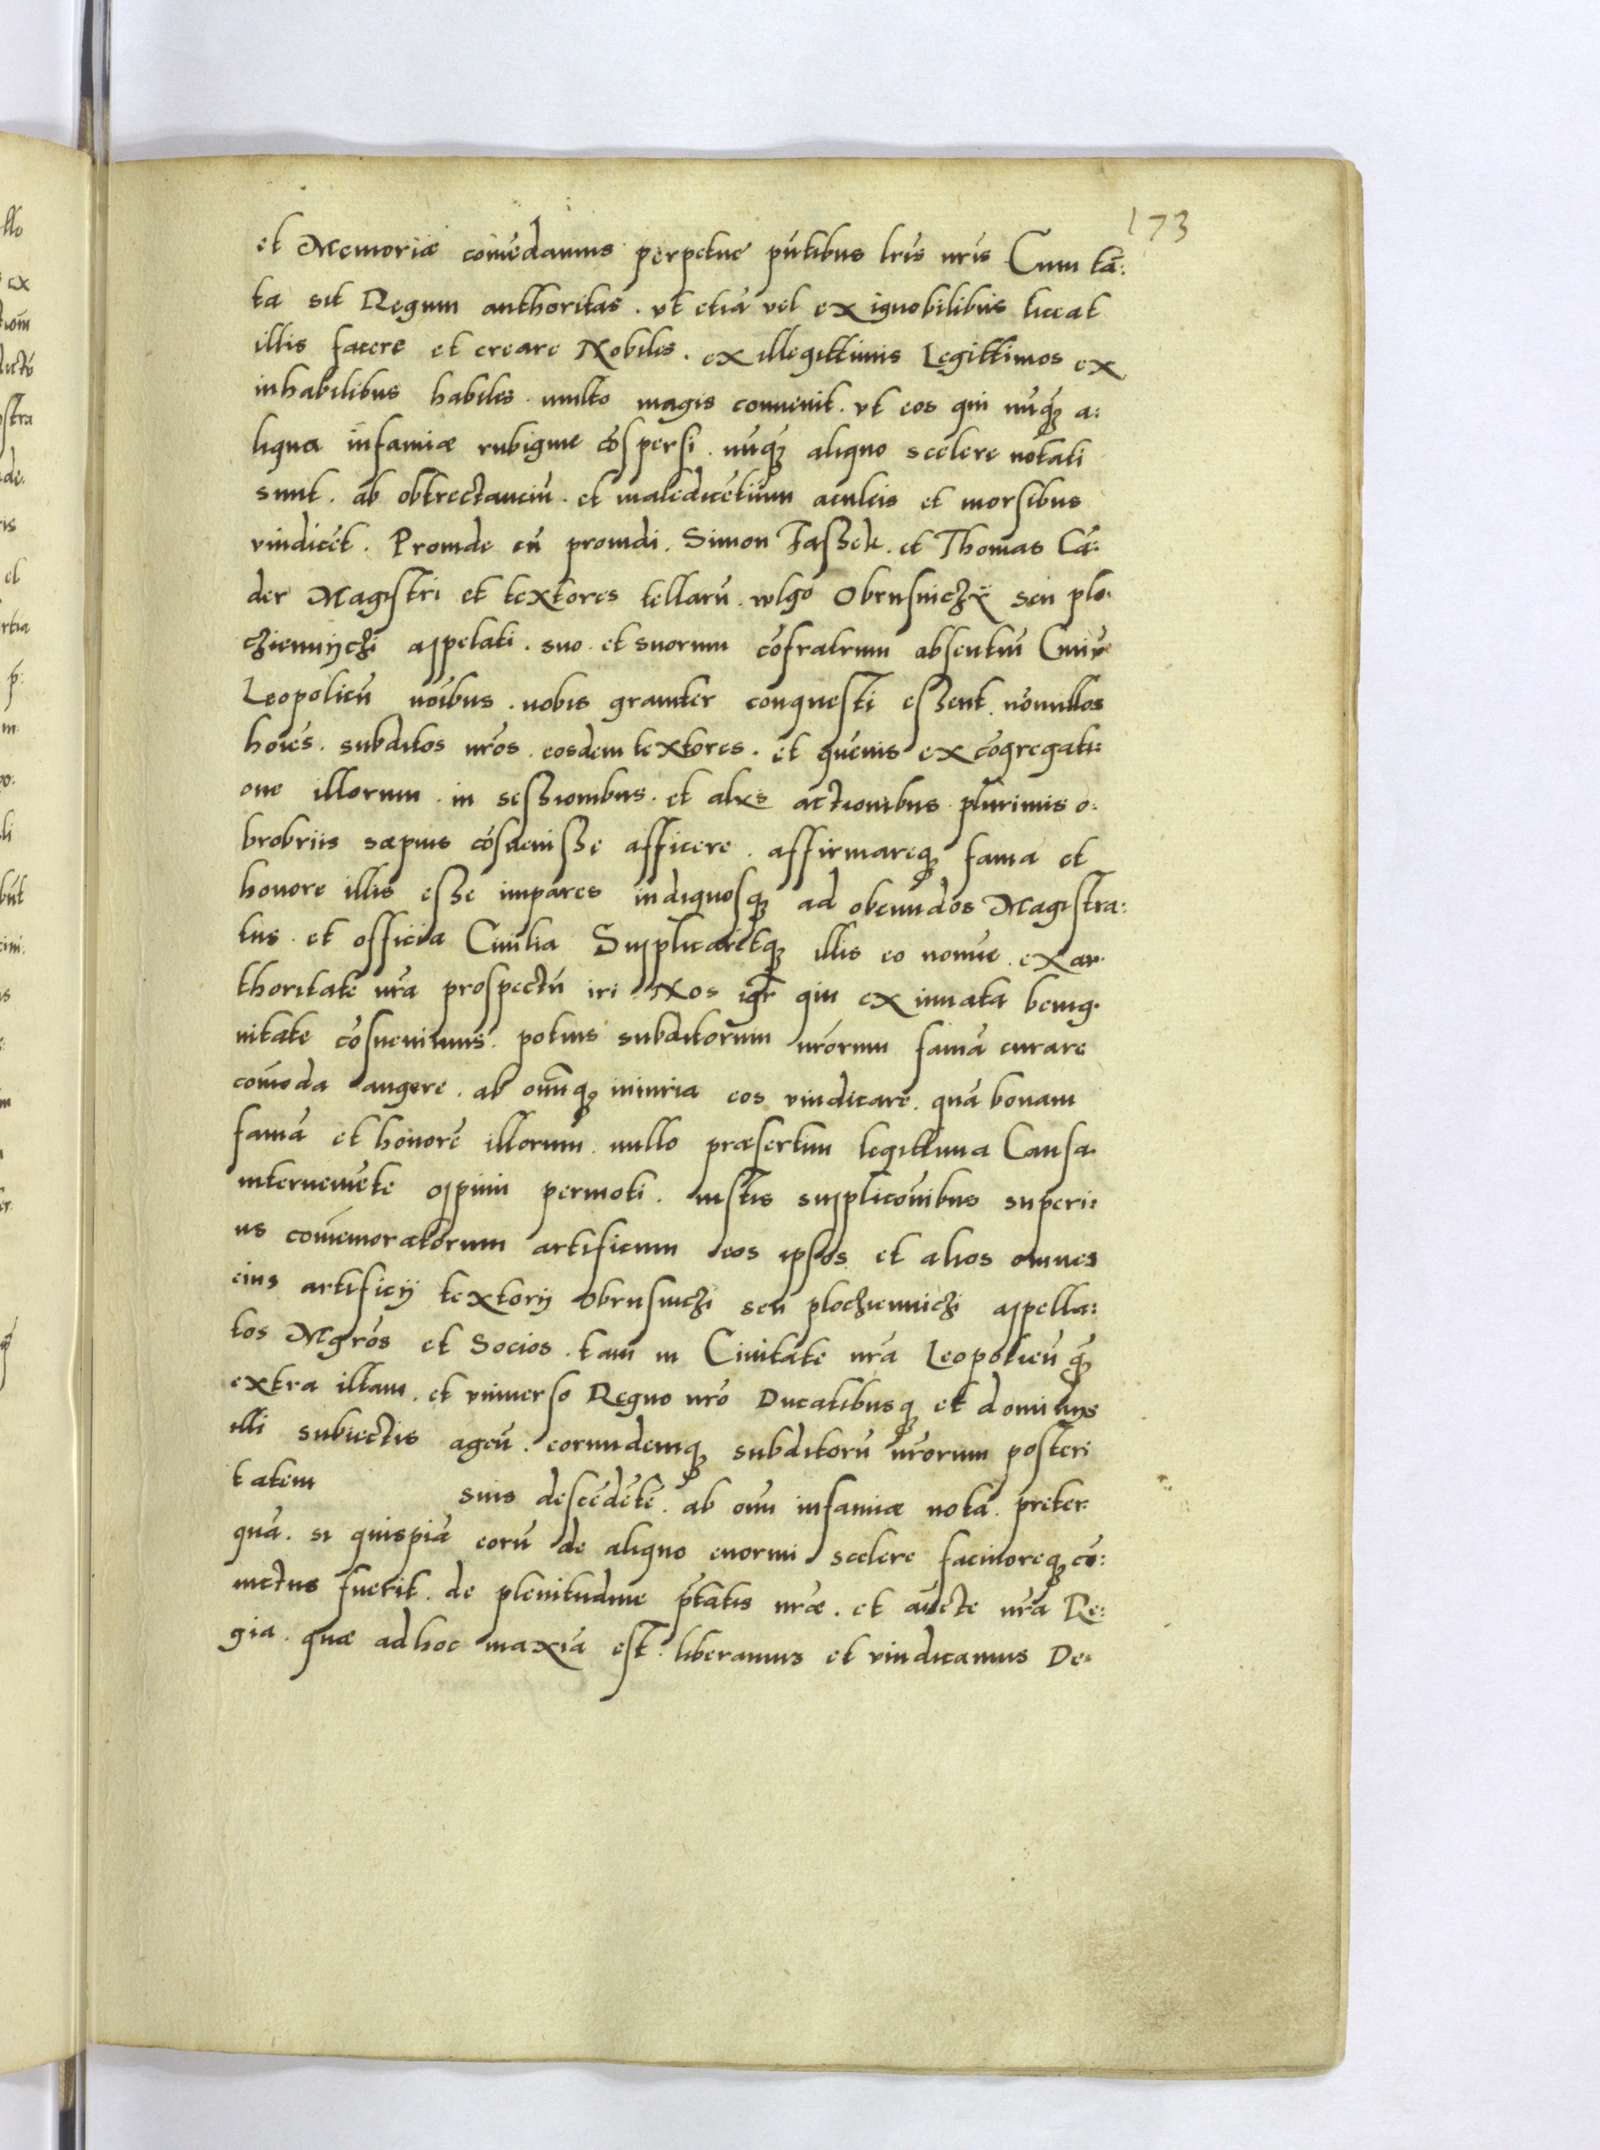 173
et Memoriæ com̄edamus perpetue pn̄tibus lr̄is nr̄is Cum tā:
ta sit Regum authoritas . vt etiā vel ex ignobilibus liceat
illis facere et creare Nobiles . ex illegittimis Legittimos ex
inhabilibus habiles . multo magis conuenit . vt eos qui nūq̨ a:
liqua infamiæ rubigine cōspersi . nūq̨ aliquo scelere notati
sunt . ab obtrectanciū . et maledicētium aculeis et morsibus
vindicēt . Proinde cū prouidi . Simon Jaßek . et Thomas Cā:
der Magistri et textores tellarū . wlgo Obrusniczÿ seu plo:
cziennyczi appelati . suo et suorum cōfratrum absentiū Ciuiū
Leopolień noībus . nobis grauiter conquesti eßent . nōnullos
hoīes . subditos nr̄os . eosdem textores . et quēuis ex cōgregati:
one illorum . in seßionibus . et alijs actionibus plurimis o:
brobriis sæpius cōsueuiße afficere . affirmareq̨ fama et
honore illis eße impares indignosq̨ ad obeundos Magistra:
tus . et officia Ciuilia Supplicarētq̨ illis eo nomīe . ex au:
thoritate nr̄a prospectū iri . Nos igr̄ qui ex innata benig:
nitate cōsueuimus . potius subditorum nr̄orum famā curare
com̄oda augere . ab om̄iq̨ iniuria eos vindicare . quā bonam
famā et honorē illorum . nullo præsertim legittima Causa
interueniēte opprimi permoti . iustis supplicōnibus superi:
us com̄emoratorum artificum eos ipsos et alios omnes
eius artificij textorij Obrusniczi seu plocziennichi appella:
tos Mgr̄os et Socios . tam in Ciuitate nr̄a Leopolień q̨
extra illam . et vniuerso Regno nr̄o Ducatibusq̨ et dominijs
illi subiectis ageń . eorundemq̨ subditorū nr̄orum posteri
tatem suis descēdētē . ab om̄i infamiæ nota . preter:
quā . si quispiā eorū de aliquo enormi scelere facinoreq̨ cō:
uictus fuerit . de plenitudine p̄tatis nr̄æ . et aūcte nr̄a Re:
gia . quæ ad hoc maxīa est . liberamus et vindicamus De: